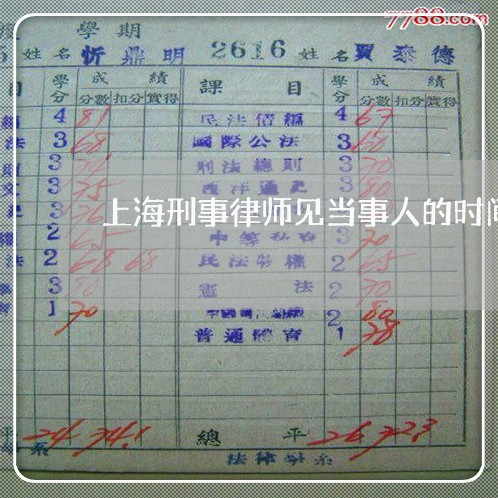 7788.com
度 學期
5 姓名 忻鼎明 2616 姓名 賈泰德
目 學分 成績 分數 扣分 實得 課目 學分 成績 分數 扣分 實得
4 81 民法債編 4 67
法 3 68 國際公法 3 60
3 刑法總則 3 70
文 3 75 西洋通史 3 80
上海刑事律师见当事人的时间
2 65 3 70
法 2 68 68 民法物權 2 65
3 80 憲法 2 70
1 70 2 80
普通體育 1 78
平 24 74.1 總平 26 72.3
系 法律學系